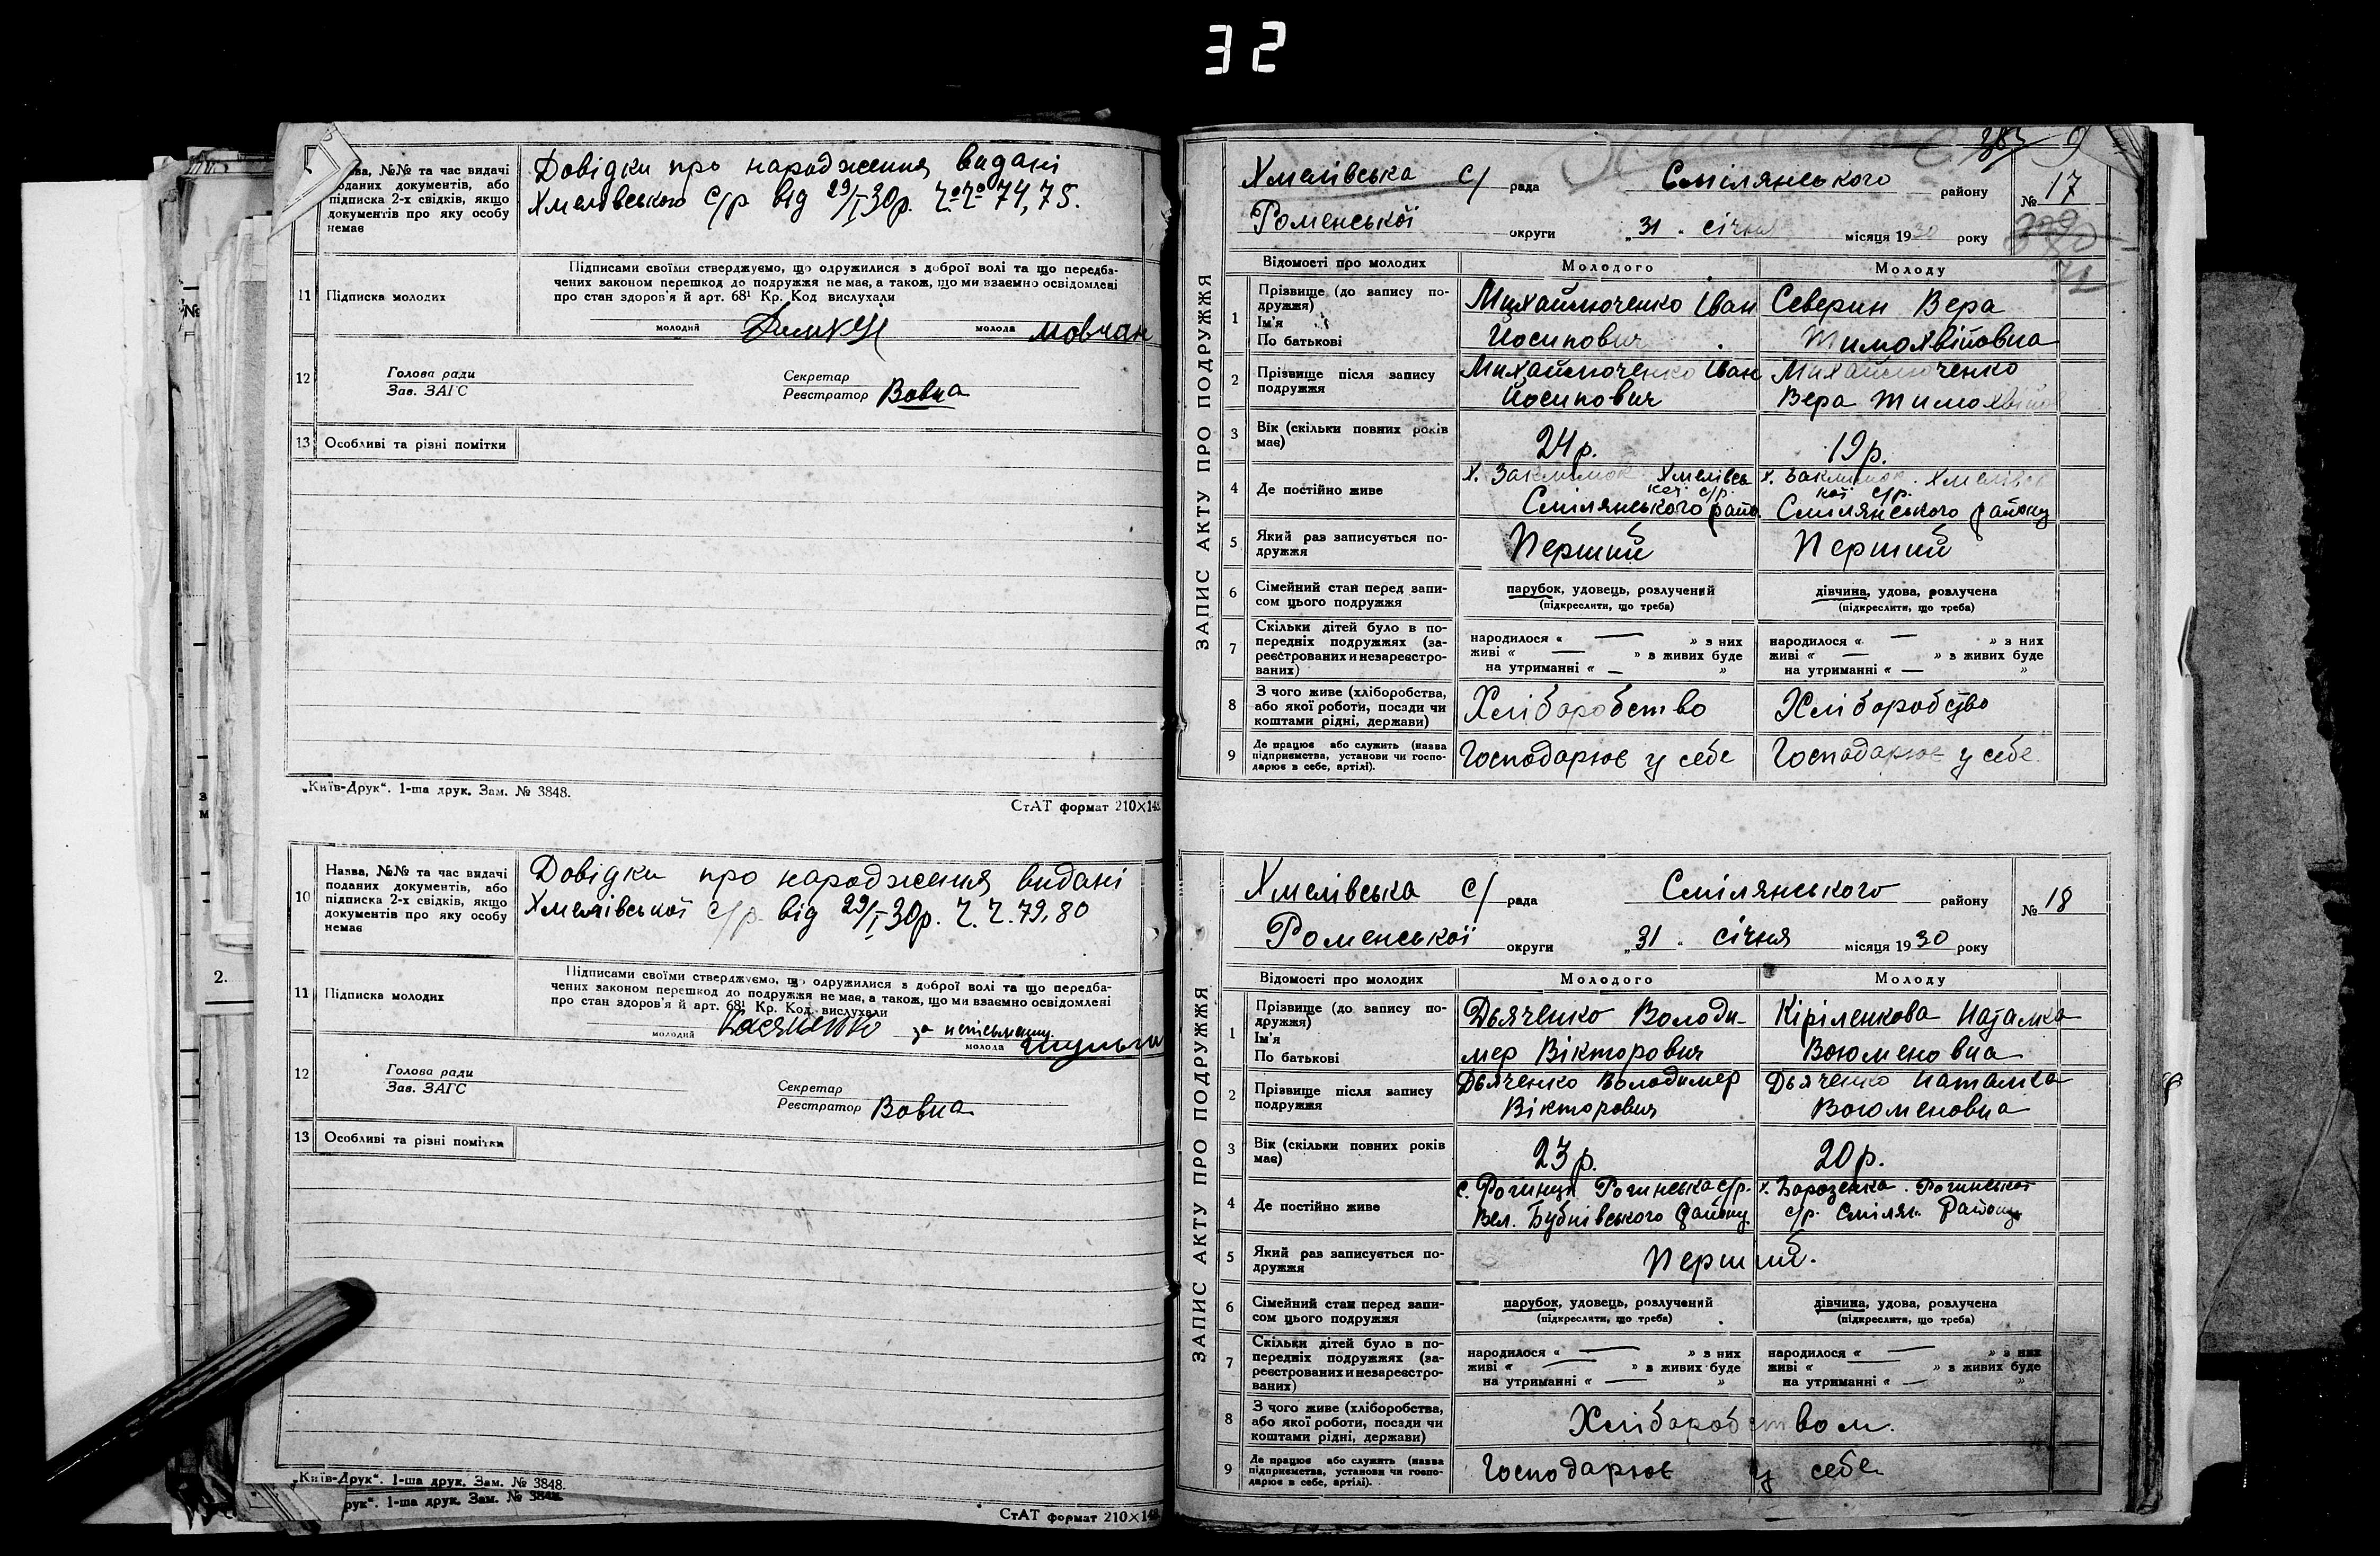 32
Назва, №№ та час видачі
поданих документів, або
підписка 2-х свідків, якщо
документів про яку особу
немає
Довідки про народження видані
Хмелівського с/р. від 29/I 30р. ч.ч. 74, 75.
11 Підписка молодих
Підписами своїми стверджуємо, що одружилися з доброї волі та що передба-
чених законом перешкод до подружжя не має, а також, що ми взаємно освідомлені
про стан здоров'я й арт. 68¹ Кр. Код вислухали
молодий молода Мовчан
12 Голова ради
Зав. ЗАГС
Секретар
Реєстратор Вовна
13 Особливі та різні помітки
„Київ-Друк“. 1-ша друк. Зам. № 3848.
СтАТ формат 210×148
10 Назва, №№ та час видачі
поданих документів, або
підписка 2-х свідків, якщо
документів про яку особу
немає
Довідки про народження видані
Хмелівської с/р. від 29/I 30р. ч.ч. 79, 80
11 Підписка молодих
Підписами своїми стверджуємо, що одружилися з доброї волі та що передба-
чених законом перешкод до подружжя не має, а також, що ми взаємно освідомлені
про стан здоров'я й арт. 68¹ Кр. Код. вислухали
молодий Касяненко за неписьменну
молода Шульга
12 Голова ради
Зав. ЗАГС
Секретар
Реєстратор Вовна
13 Особливі та різні помітки
„Київ-Друк“. 1-ша друк. Зам. № 3848.
рук“. 1-ша друк. Зам. № 3848.
СтАТ формат 210×148
ЗАПИС АКТУ ПРО ПОДРУЖЖЯ
9
Хмелівська с/ рада Смілянського району № 17
Роменської округи „31“ січня місяця 1930 року
72
Відомості про молодих Молодого Молоду
1 Прізвище (до запису по-
дружжя)
Ім'я
По батькові
Михайлюченко Іван
Йосипович
Северин Вера
Тимохвіївна
2 Прізвище після запису
подружжя
Михайлюченко Іван
Йосипович
Михайлюченко
Вера Тимохвіїв
3 Вік (скільки повних років
має)
24р.
19р.
4 Де постійно живе
х. Заклимок Хмелівсь
кої с/р.
Смілянського райо.
х. Заклимок. Хмелівсь
кої с/р.
Смілянського району
5 Який раз записується по-
дружжя
Перший
Перший
6 Сімейний стан перед запи-
сом цього подружжя
парубок, удовець, розлучений
(підкреслити, що треба)
дівчина, удова, розлучена
(підкреслити, що треба)
7 Скільки дітей було в по-
передніх подружжях (за-
реєстрованих и незареєстро-
ваних)
народилося « — » з них
живі « — » з живих буде
на утриманні « — »
народилося « — » з них
живі « — » з живих буде
на утриманні « — »
8 З чого живе (хліборобства,
або якої роботи, посади чи
коштами рідні, держави)
Хліборобство
Хліборобство
9 Де працює або служить (назва
підприємства, установи чи госпо-
дарює в себе, артілі).
Господарює у себе
Господарює у себе
ЗАПИС АКТУ ПРО ПОДРУЖЖЯ
Хмелівська с/ рада Смілянського району № 18
Роменської округи „31“ січня місяця 1930 року
Відомості про молодих Молодого Молоду
1 Прізвище (до запису по-
дружжя)
Ім'я
По батькові
Дьяченко Володи-
мер Вікторович
Кіріленкова Наталка
Воюменовна
2 Прізвище після запису
подружжя
Дьяченко Володимер
Вікторович
Дьяченко Наталка
Воюменовна
3 Вік (скільки повних років
має)
23р.
20р.
4 Де постійно живе
с. Рогинци Рогинська с/р.
Вел. Бубнівського району
х. Борозенка. Рогинської
с/р. Смілян. Району
5 Який раз записується по-
дружжя
Перший.
6 Сімейний стан перед запи-
сом цього подружжя
парубок, удовець, розлучений
(підкреслити, що треба)
дівчина, удова, розлучена
(підкреслити, що треба)
7 Скільки дітей було в по-
передніх подружжях (за-
реєстрованих и незареєстро-
ваних)
народилося « — » з них
живі « — » з живих буде
на утриманні « — »
народилося « — » з них
живі « — » з живих буде
на утриманні « — »
8 З чого живе (хліборобства,
або якої роботи, посади чи
коштами рідні, держави)
Хліборобством.
9 Де працює або служить (назва
підприємства, установи чи госпо-
дарює в себе, артілі).
Господарює у себе